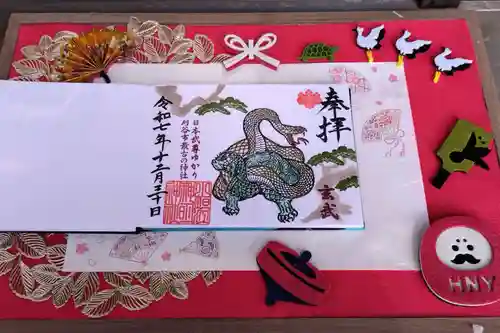 奉拝
玄武
日本武尊ゆかり
刈谷市最古の神社
令和七年十二月三十日
HNY